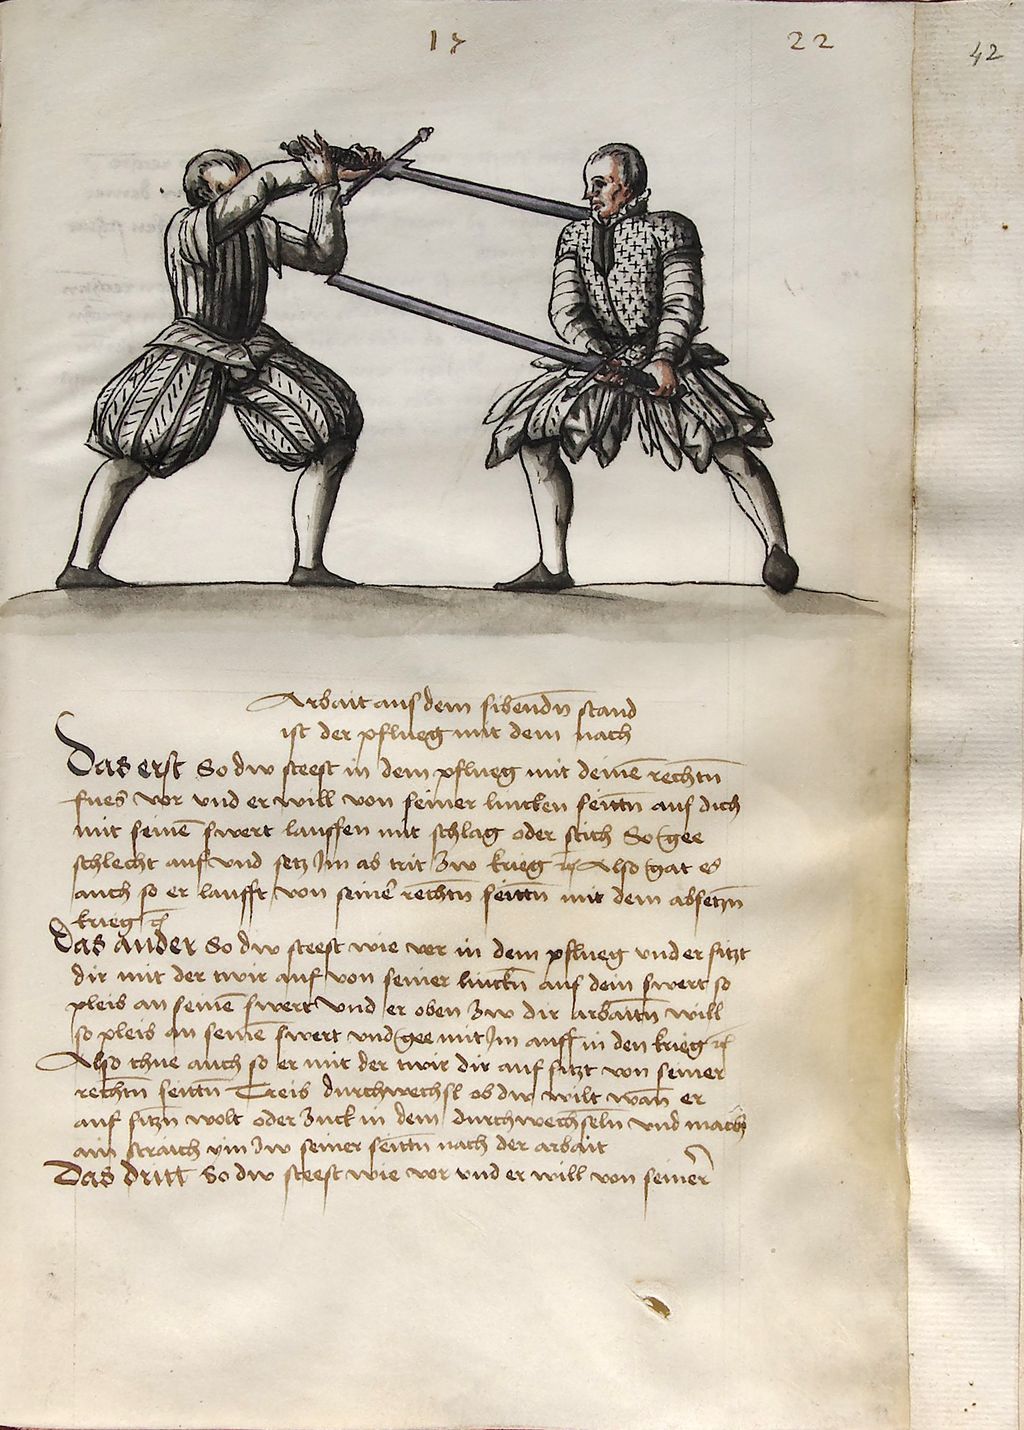 17
22
42
Arbait aus dem sibendn̄ stand
ist der pflueg mit dem nach
Das erst So dw steest in dem pflueg mit deinē rechtn̄
fues vor und er will von seiner lincken seittn̄ auf dich
mit seinē swert lauffen mit schlag oder stich So gee
schlecht auf und setz Im ab trit zw krieg Also gat es
auch so er laufft von seiner rechtn̄ seittn̄ mit dem absetzn̄
krieg
Das ander So dw steest wie vor in dem pflueg und er sitzt
dir mit der twir auf von seiner linckn̄ auf dein swert so
pleib an seinē swert Und er oben zw dir arbaittn̄ will
so pleib an seinē swert und gee mit Im auff in den krieg
Also thue auch so er mit der twir dir auf sitzt von seiner
rechtn̄ seittn̄ Treib durchwechsl ob dw wilt wan̄ er
auf sitzn̄ wolt oder zuck in dem durchwechseln̄ und mach
ain straich um zw seiner seittn̄ nach der arbait
Das dritt So dw steest wie vor und er will von seiner